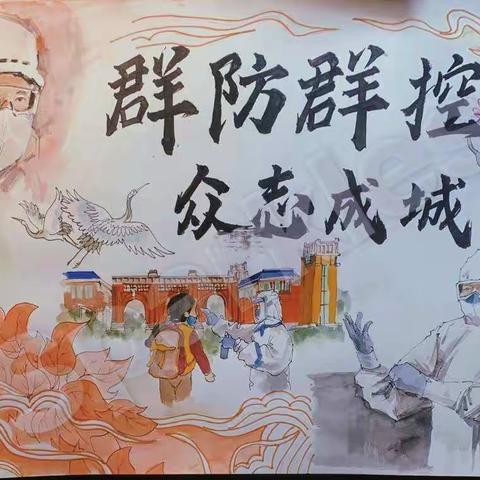 群防群控
众志成城